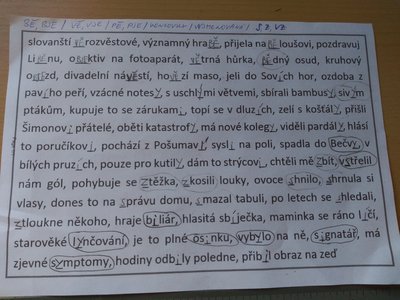 BĚ, BJE / VĚ, VJE / PĚ, PJE / KONCOVKY / VYJMENOVANÁ / SZ, VZ
slovanští věrozvěstové, významný hrabě, přijela na běloušovi, pozdravuj
Liběnu, objektiv na fotoaparát, větrná hůrka, bědný osud, kruhový
objezd, divadelní návěstí, hovězí maso, jeli do Sovích hor, ozdoba z
pavího peří, vzácné notesy, s uschlými větvemi, sbírali bambusy, sivým
ptákům, kupuje to se zárukami, topí se v dluzích, zelí s košťály, přišli
Šimonovi přátelé, oběti katastrofy, má nové kolegy, viděli pardály, hlásí
to poručíkovi, pochází z Pošumaví, sysli na poli, spadla do Bečvy, v
bílých pruzích, pouze pro kutily, dám to strýcovi, chtěli mě zbít, vstřelil
nám gól, pohybuje se ztěžka, zkosili louky, ovoce shnilo, shrnula si
vlasy, dones to na správu domu, smazal tabuli, po letech se shledali,
ztloukne někoho, hraje biliár, hlasitá sbíječka, maminka se ráno líčí,
starověké lynčování, je to plné osinku, vybylo na ně, signatář, má
zjevné symptomy, hodiny odbily poledne, přibil obraz na zeď